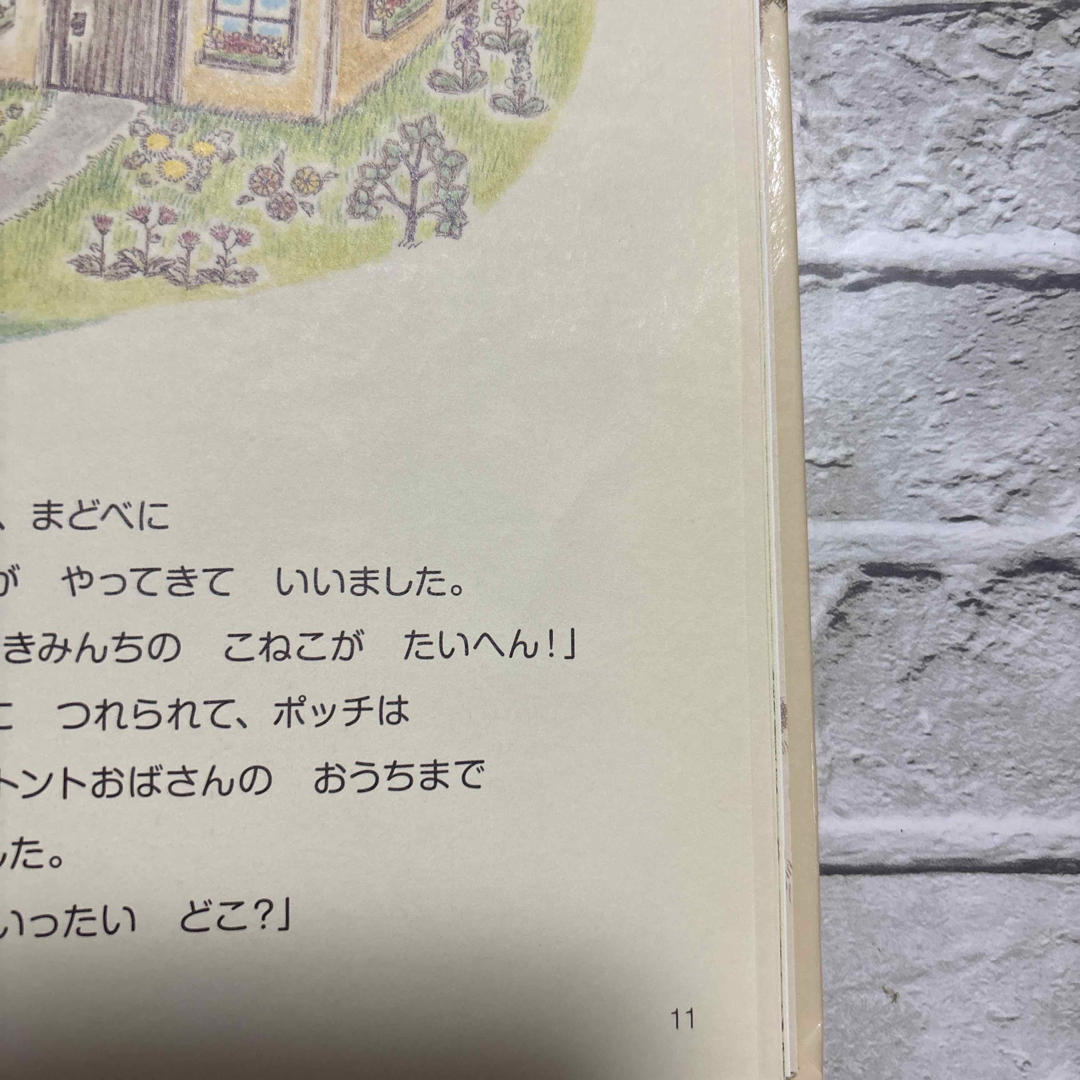 、まどべに
が　やってきて　いいました。
きみんちの　こねこが　たいへん！」
に　つれられて、ポッチは
トントおばさんの　おうちまで
した。
いったい　どこ？」
11